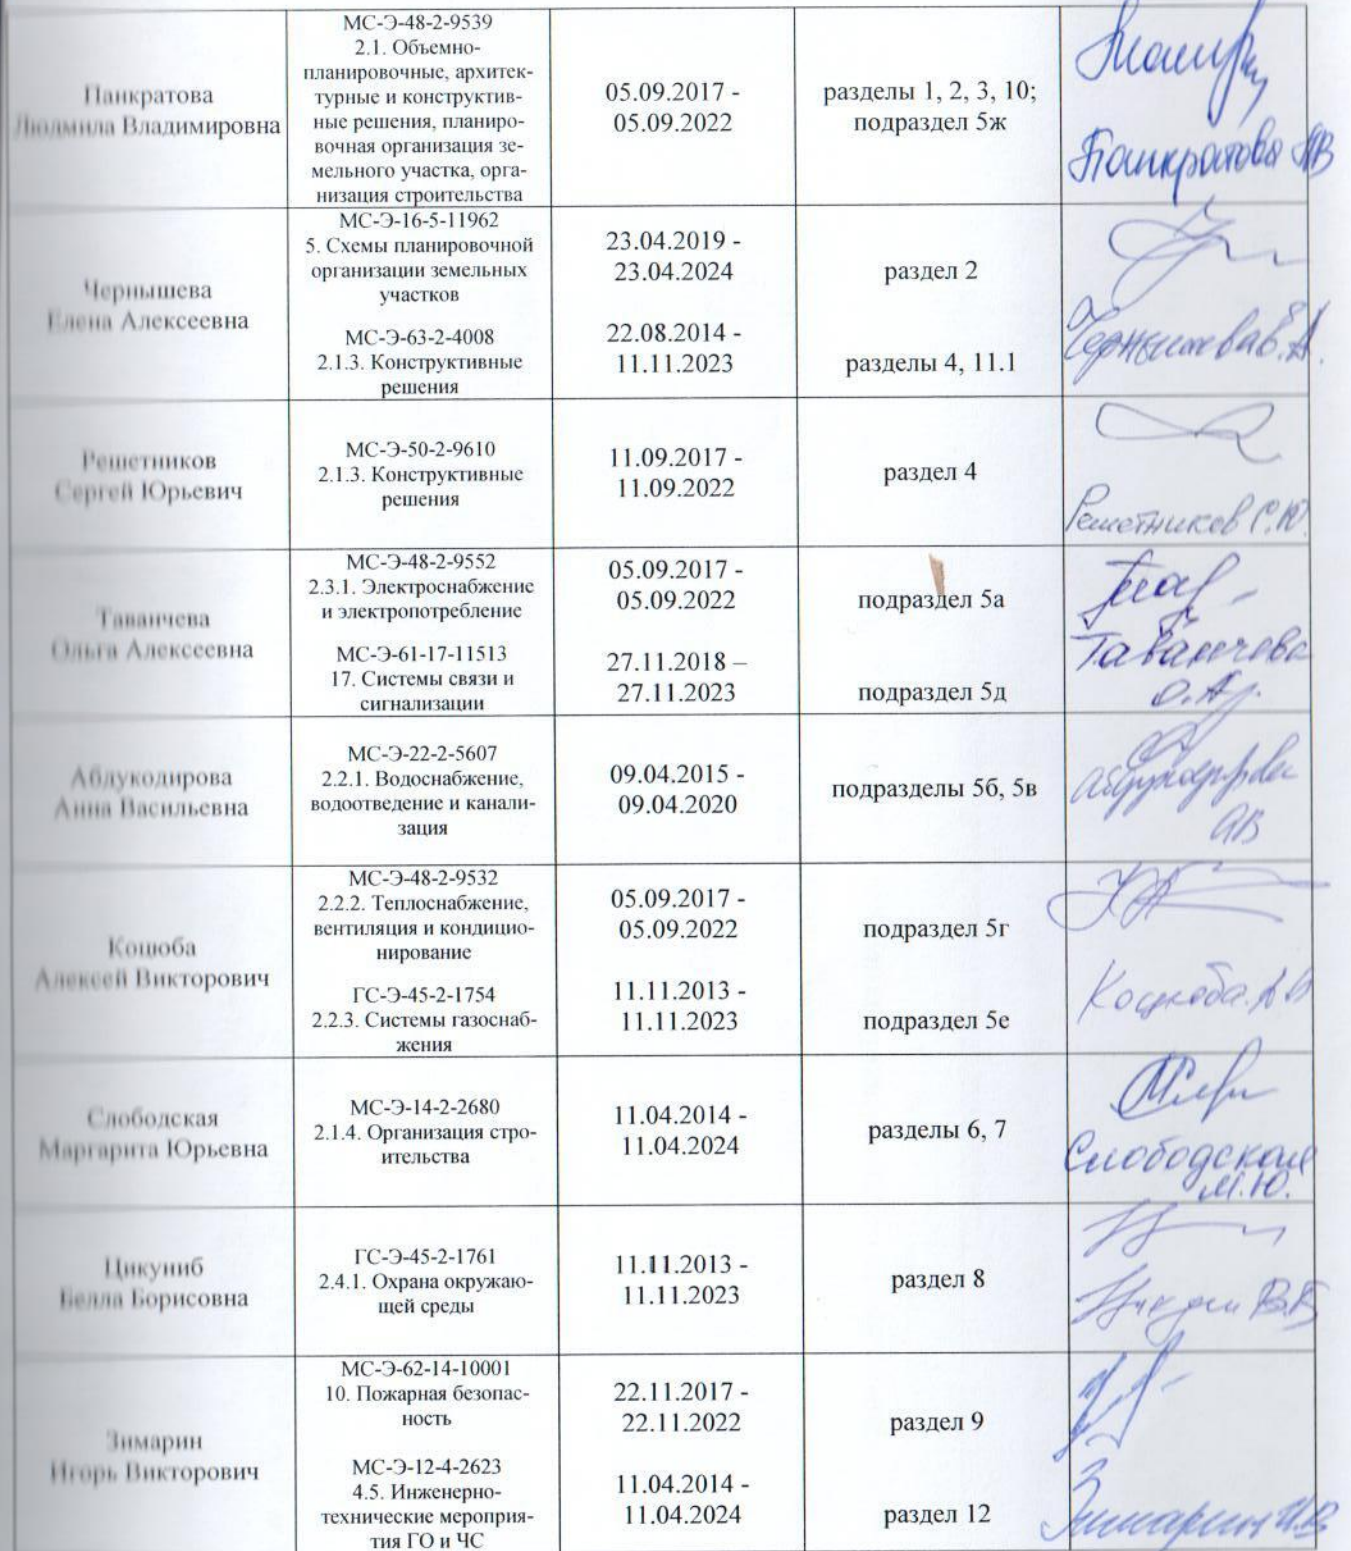 Панкратова
Людмила Владимировна
МС-Э-48-2-9539
2.1. Объемно-
планировочные, архитек-
турные и конструктив-
ные решения, планиро-
вочная организация зе-
мельного участка, орга-
низация строительства
05.09.2017 -
05.09.2022
разделы 1, 2, 3, 10;
подраздел 5ж
Панкратова ЛВ
Чернышева
Елена Алексеевна
МС-Э-16-5-11962
5. Схемы планировочной
организации земельных
участков
23.04.2019 -
23.04.2024
раздел 2
МС-Э-63-2-4008
2.1.3. Конструктивные
решения
22.08.2014 -
11.11.2023
разделы 4, 11.1
Чернышева Е.А.
Решетников
Сергей Юрьевич
МС-Э-50-2-9610
2.1.3. Конструктивные
решения
11.09.2017 -
11.09.2022
раздел 4
Решетников С.Ю.
Таванчева
Ольга Алексеевна
МС-Э-48-2-9552
2.3.1. Электроснабжение
и электропотребление
05.09.2017 -
05.09.2022
подраздел 5а
МС-Э-61-17-11513
17. Системы связи и
сигнализации
27.11.2018 –
27.11.2023
подраздел 5д
Таванчева
О.А.
Абдукодирова
Анна Васильевна
МС-Э-22-2-5607
2.2.1. Водоснабжение,
водоотведение и канали-
зация
09.04.2015 -
09.04.2020
подразделы 5б, 5в
Абдукодирова
АВ
Коцюба
Алексей Викторович
МС-Э-48-2-9532
2.2.2. Теплоснабжение,
вентиляция и кондицио-
нирование
05.09.2017 -
05.09.2022
подраздел 5г
ГС-Э-45-2-1754
2.2.3. Системы газоснаб-
жения
11.11.2013 -
11.11.2023
подраздел 5е
Коцюба А.В
Слободская
Маргарита Юрьевна
МС-Э-14-2-2680
2.1.4. Организация стро-
ительства
11.04.2014 -
11.04.2024
разделы 6, 7
Слободская
М.Ю.
Цикуниб
Белла Борисовна
ГС-Э-45-2-1761
2.4.1. Охрана окружаю-
щей среды
11.11.2013 -
11.11.2023
раздел 8
Зимарин
Игорь Викторович
МС-Э-62-14-10001
10. Пожарная безопас-
ность
22.11.2017 -
22.11.2022
раздел 9
МС-Э-12-4-2623
4.5. Инженерно-
технические мероприя-
тия ГО и ЧС
11.04.2014 -
11.04.2024
раздел 12
Зимарин И.В